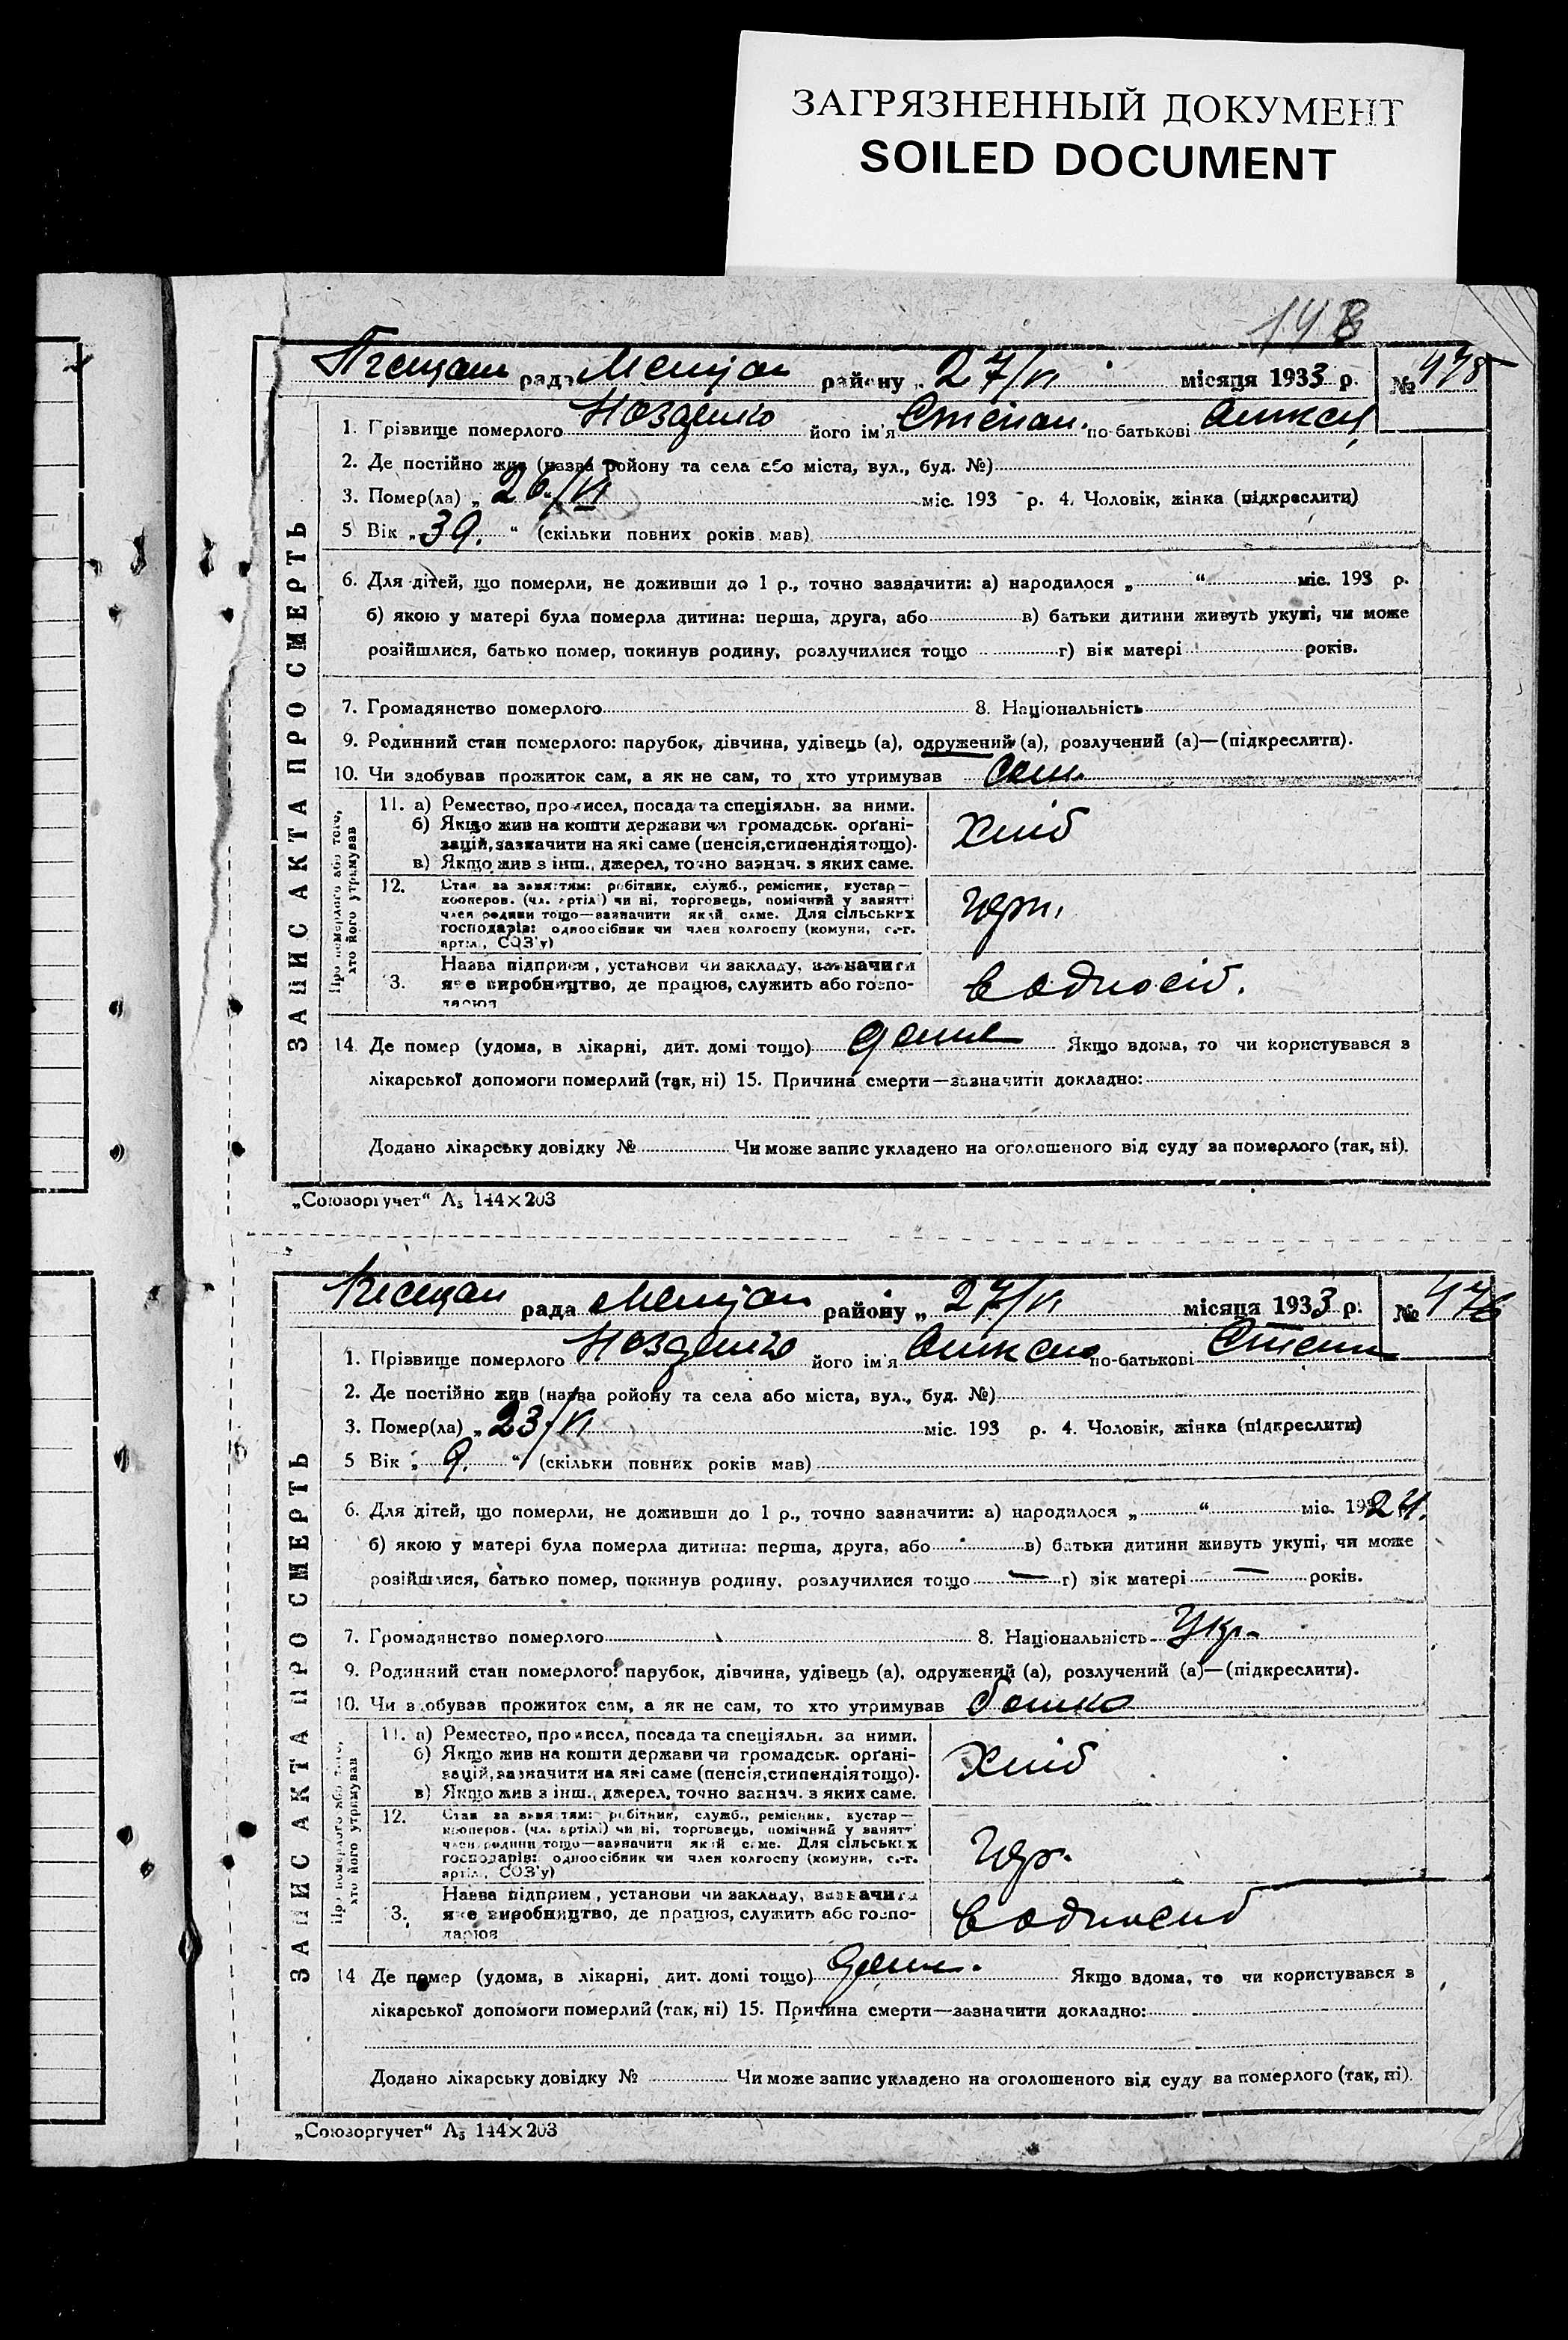 ЗАГРЯЗНЕННЫЙ ДОКУМЕНТ
SOILED DOCUMENT
148
рада району „ 27/VI місяця 1933 р. № 475
ЗАПИС АКТА ПРО СМЕРТЬ
1. Прізвище померлого Ноздренко його ім'я Степан по-батькові Олексі
2. Де постійно жив (назва району та села або міста, вул., буд. №)
3. Помер(ла) „ 26/VI міс. 193 р. 4. Чоловік, жінка (підкреслити)
5 Вік „ 39. “ (скільки повних років мав)
6. Для дітей, що померли, не доживши до 1 р., точно зазначити: а) народилося „ “ міс. 193 р.
б) якою у матері була померла дитина: перша, друга, або в) батьки дитини живуть укупі, чи може
розійшлися, батько помер, покинув родину, розлучилися тощо г) вік матері років.
7. Громадянство померлого 8. Національність
9. Родинний стан померлого: парубок, дівчина, удівець (а), одружений (а), розлучений (а)—(підкреслити).
10. Чи здобував прожиток сам, а як не сам, то хто утримував Сам.
Про померлого або того, хто його утримував
11. а) Ремество, промисел, посада та спеціяльн. за ними.
б) Якщо жив на кошти держави чи громадськ. орґані-
зацій, зазначити на які саме (пенсія, стипендія тощо).
в) Якщо жив з інш., джерел, точно зазнач. з яких саме.
Хліб
12. Стан за заняттям: робітник, служб., ремісник, кустар—
кооперов. (чл. артілі) чи ні, торговець, помічний у занятті
член родини тощо—зазначити який саме. Для сільських
господарів: одноосібник чи член колгоспу (комуни, с.-г.
артілі, СОЗ'у)
13. Назва підприєм, установи чи закладу, зазначити
яке виробництво, де працюв, служить або госпо-
дарюв
в односіб.
14. Де помер (удома, в лікарні, дит. домі тощо) дома Якщо вдома, то чи користувався з
лікарської допомоги померлий (так, ні) 15. Причина смерти—зазначити докладно:
Додано лікарську довідку № Чи може запис укладено на оголошеного від суду за померлого (так, ні).
„Союзоргучет“ А5 144×203
рада району „ 27/VI місяця 1933 р. № 476
ЗАПИС АКТА ПРО СМЕРТЬ
1. Прізвище померлого Ноздренко його ім'я по-батькові Степан
2. Де постійно жив (назва району та села або міста, вул., буд. №)
3. Помер(ла) „ 23/VI міс. 193 р. 4. Чоловік, жінка (підкреслити)
5 Вік „ 9. “ (скільки повних років мав)
6. Для дітей, що померли, не доживши до 1 р., точно зазначити: а) народилося „ “ міс. 1924.
б) якою у матері була померла дитина: перша, друга, або в) батьки дитини живуть укупі, чи може
розійшлися, батько помер, покинув родину, розлучилися тощо — г) вік матері — років.
7. Громадянство померлого 8. Національність Укр.
9. Родинний стан померлого: парубок, дівчина, удівець (а), одружений (а), розлучений (а)—(підкреслити).
10. Чи здобував прожиток сам, а як не сам, то хто утримував батько
Про померлого або того, хто його утримував
11. а) Ремество, промисел, посада та спеціяльн. за ними.
б) Якщо жив на кошти держави чи громадськ. орґані-
зацій, зазначити на які саме (пенсія, стипендія тощо).
в) Якщо жив з інш., джерел, точно зазнач. з яких саме.
Хліб
12. Стан за заняттям: робітник, служб., ремісник, кустар—
кооперов. (чл. артілі) чи ні, торговець, помічний у занятті
член родини тощо—зазначити який саме. Для сільських
господарів: одноосібник чи член колгоспу (комуни, с.-г.
артілі, СОЗ'у)
13. Назва підприєм, установи чи закладу, зазначити
яке виробництво, де працюв, служить або госпо-
дарюв
в односіб
14 Де помер (удома, в лікарні, дит. домі тощо) дома. Якщо вдома, то чи користувався з
лікарської допомоги померлий (так, ні) 15. Причина смерти—зазначити докладно:
Додано лікарську довідку № Чи може запис укладено на оголошеного від суду за померлого (так, ні).
„Союзоргучет“ А5 144×203